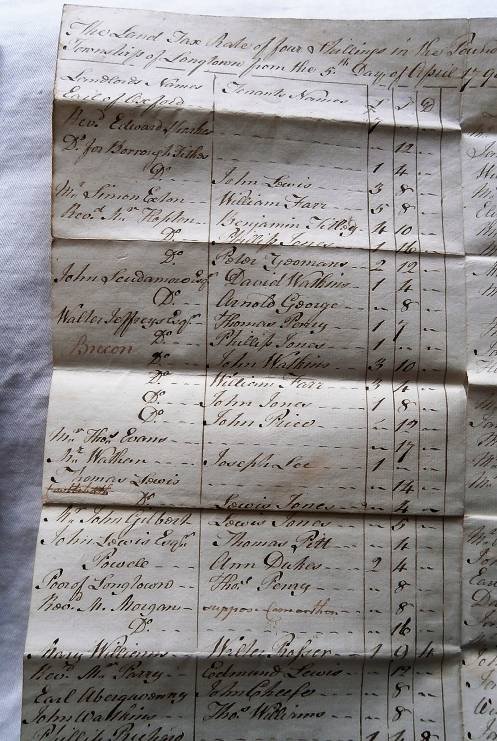 The Land Tax Rate of four Shillings in the Pound
Township of Longtown from the 5th Day of April 179
Landlords Names Tenants Names £ S D
Earl of Oxford -- 7 - -
Revd. Edward -- 12 -
Do. for Borrough Tithes 1 4 -
Do. John Lewis 3 8 -
Mr. Simon Exton William Farr 5 8 -
Revd. Mr. Benjamin 4 10 -
Do. Phillip Jones 1 16 -
Do. Peter Yeomans 2 12 -
John Scudamore Esqr. David Watkins 1 4 -
Do. Arnold George - 8 -
Walter Jeffreys Esqr. Thomas Perry 1 7 -
Brecon Do. Phillip Jones 1 - -
Do. John Watkins 3 10 -
Do. William Farr 3 4 -
Do. John Jones 1 8 -
Do. John Price - 12 -
Mr. Thos. Evans - 17 -
Mr. Wathan Joseph Lee 1 - -
Thomas Lewis - 14 -
Do. Lewis Jones - 4 -
Mr. John Gilbert Lewis Jones - 5 -
John Lewis Esqr. Thomas Pitt - 4 -
Powele Ann Dukes 2 4 -
Poor of Longtown Thos. Perry - 8 -
Revd. M. Morgan suppos - 8 -
Do. - 16 -
Mary Williams Walter Prosser 1 9 4
Revd. Mr. Parry Eedmund Lewis - 12 -
Earl Abergavenny John Cheese - 8 -
John Watkins Thos. Williams - 8 -
Phillip 1 4 8